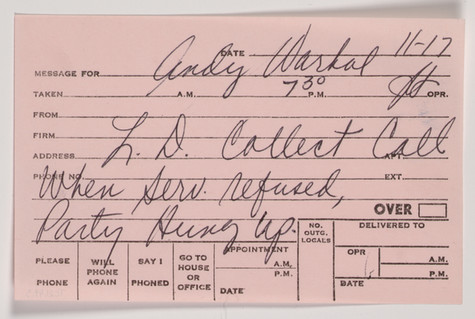 DATE 11-17
MESSAGE FOR Andy Warhol
TAKEN A.M. 7 30 P.M. OPR.
FROM
FIRM
ADDRESS L. D. Collect Call APT.
PHONE NO. EXT.
When Serv. refused,
OVER
Party Hung Up.
PLEASE PHONE
WILL PHONE AGAIN
SAY I PHONED
GO TO HOUSE OR OFFICE
APPOINTMENT A.M. P.M. DATE
NO. OUTG. LOCALS
DELIVERED TO
OPR A.M. P.M.
DATE